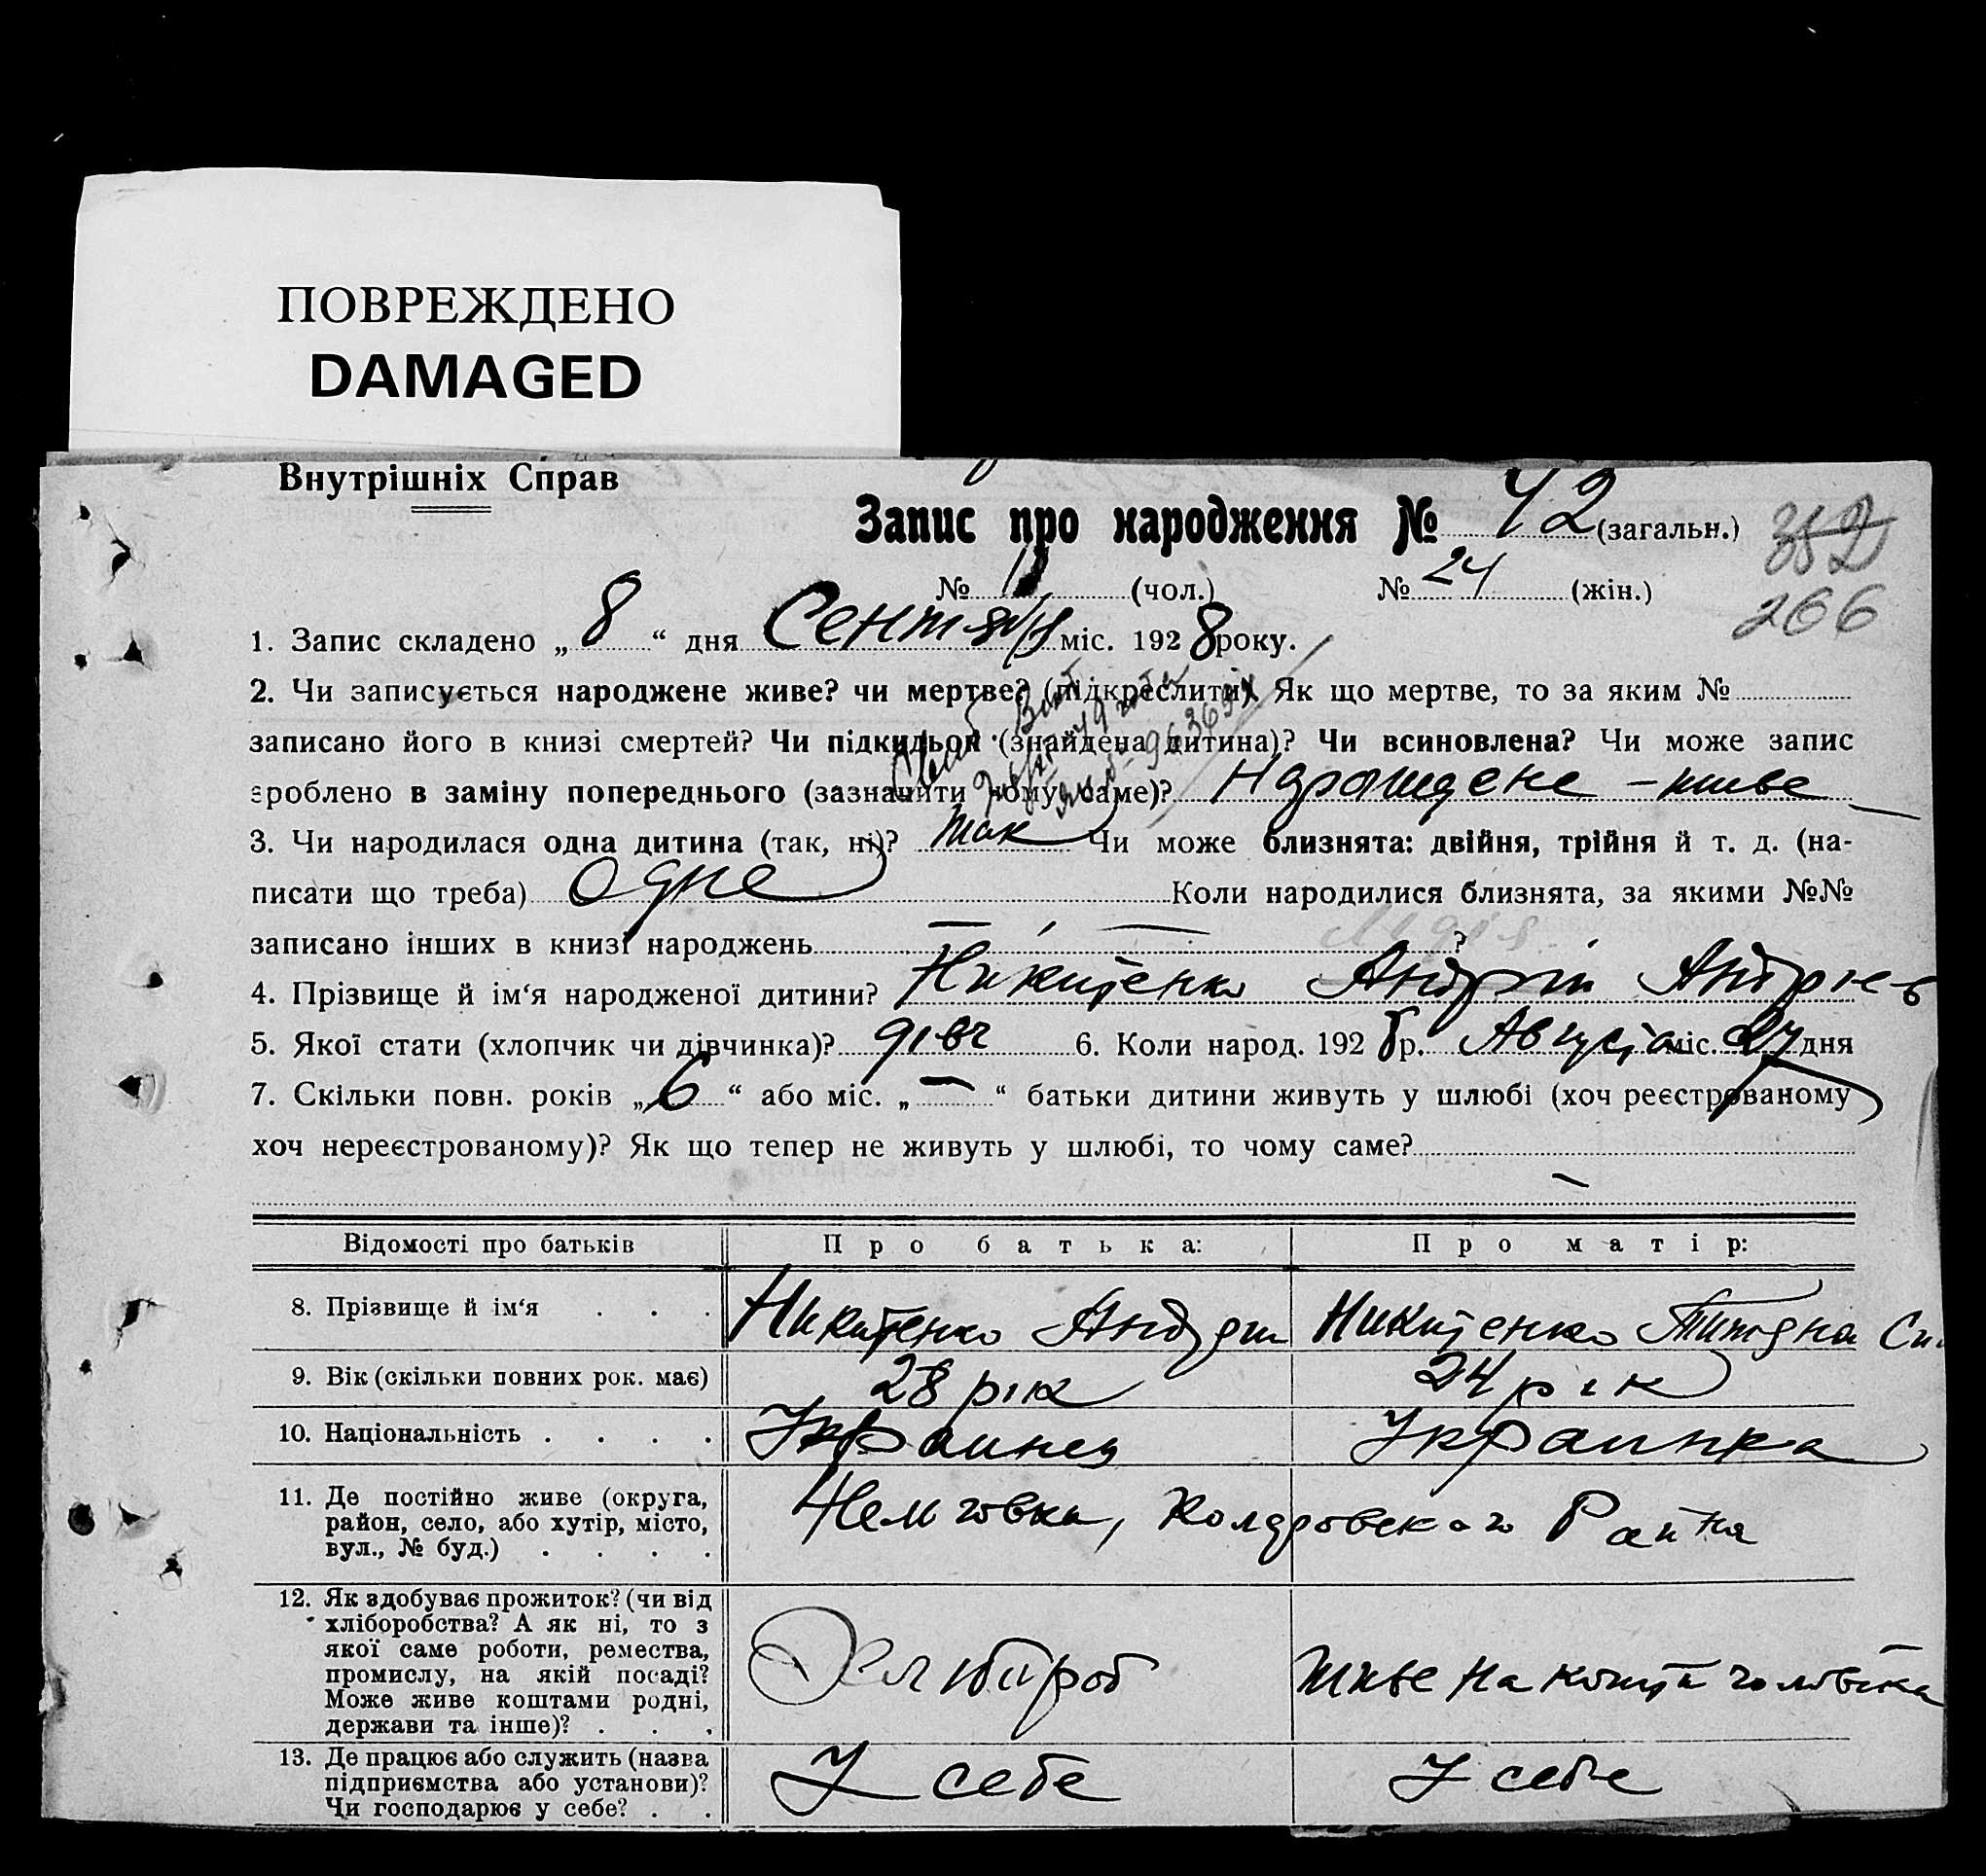 ПОВРЕЖДЕНО
DAMAGED
Внутрішніх Справ
Запис про народження № 42 (загальн.)
352
№ (чол.) № 24 (жін.)
266
1. Запис складено „ 8 “ дня Сентяб міс. 192 8 року.
2. Чи записується народжене живе? чи мертве? (підкреслити). Як що мертве, то за яким №
записано його в книзі смертей? Чи підкидьок (знайдена дитина)? Чи всиновлена? Чи може запис
зроблено в заміну попереднього (зазначити чому саме)? Нарождене - живе
3. Чи народилася одна дитина (так, ні)? Так Чи може близнята: двійня, трійня й т. д. (на-
писати що треба) Одне Коли народилися близнята, за якими №№
записано інших в книзі народжень ?
Лидія
4. Прізвище й ім‘я народженої дитини? Никитенко Андрій Андріев
5. Якої стати (хлопчик чи дівчинка)? дівч 6. Коли народ. 192 8 р. Августа міс. 27 дня
7. Скільки повн. років „ 6 “ або міс. „ — “ батьки дитини живуть у шлюбі (хоч реєстрованому
хоч нереєстрованому)? Як що тепер не живуть у шлюбі, то чому саме? —
Відомості про батьків Про батька: Про матір:
8. Прізвище й ім‘я . . . Никитенко Андрей Никитенко Титяна
9. Вік (скільки повних рок. має) 28 рік 24 рік
10. Національність . . . . Украинец Украинка
11. Де постійно живе (округа,
район, село, або хутір, місто,
вул., № буд.) . . . .
Района
12. Як здобуває прожиток? (чи від
хліборобства? А як ні, то з
якої саме роботи, ремества,
промислу, на якій посаді?
Може живе коштами родні,
держави та інше)? . . .
Хлибороб Живе на кошти чоловіка
13. Де працює або служить (назва
підприємства або установи)?
Чи господарює у себе? . .
У себе У себе